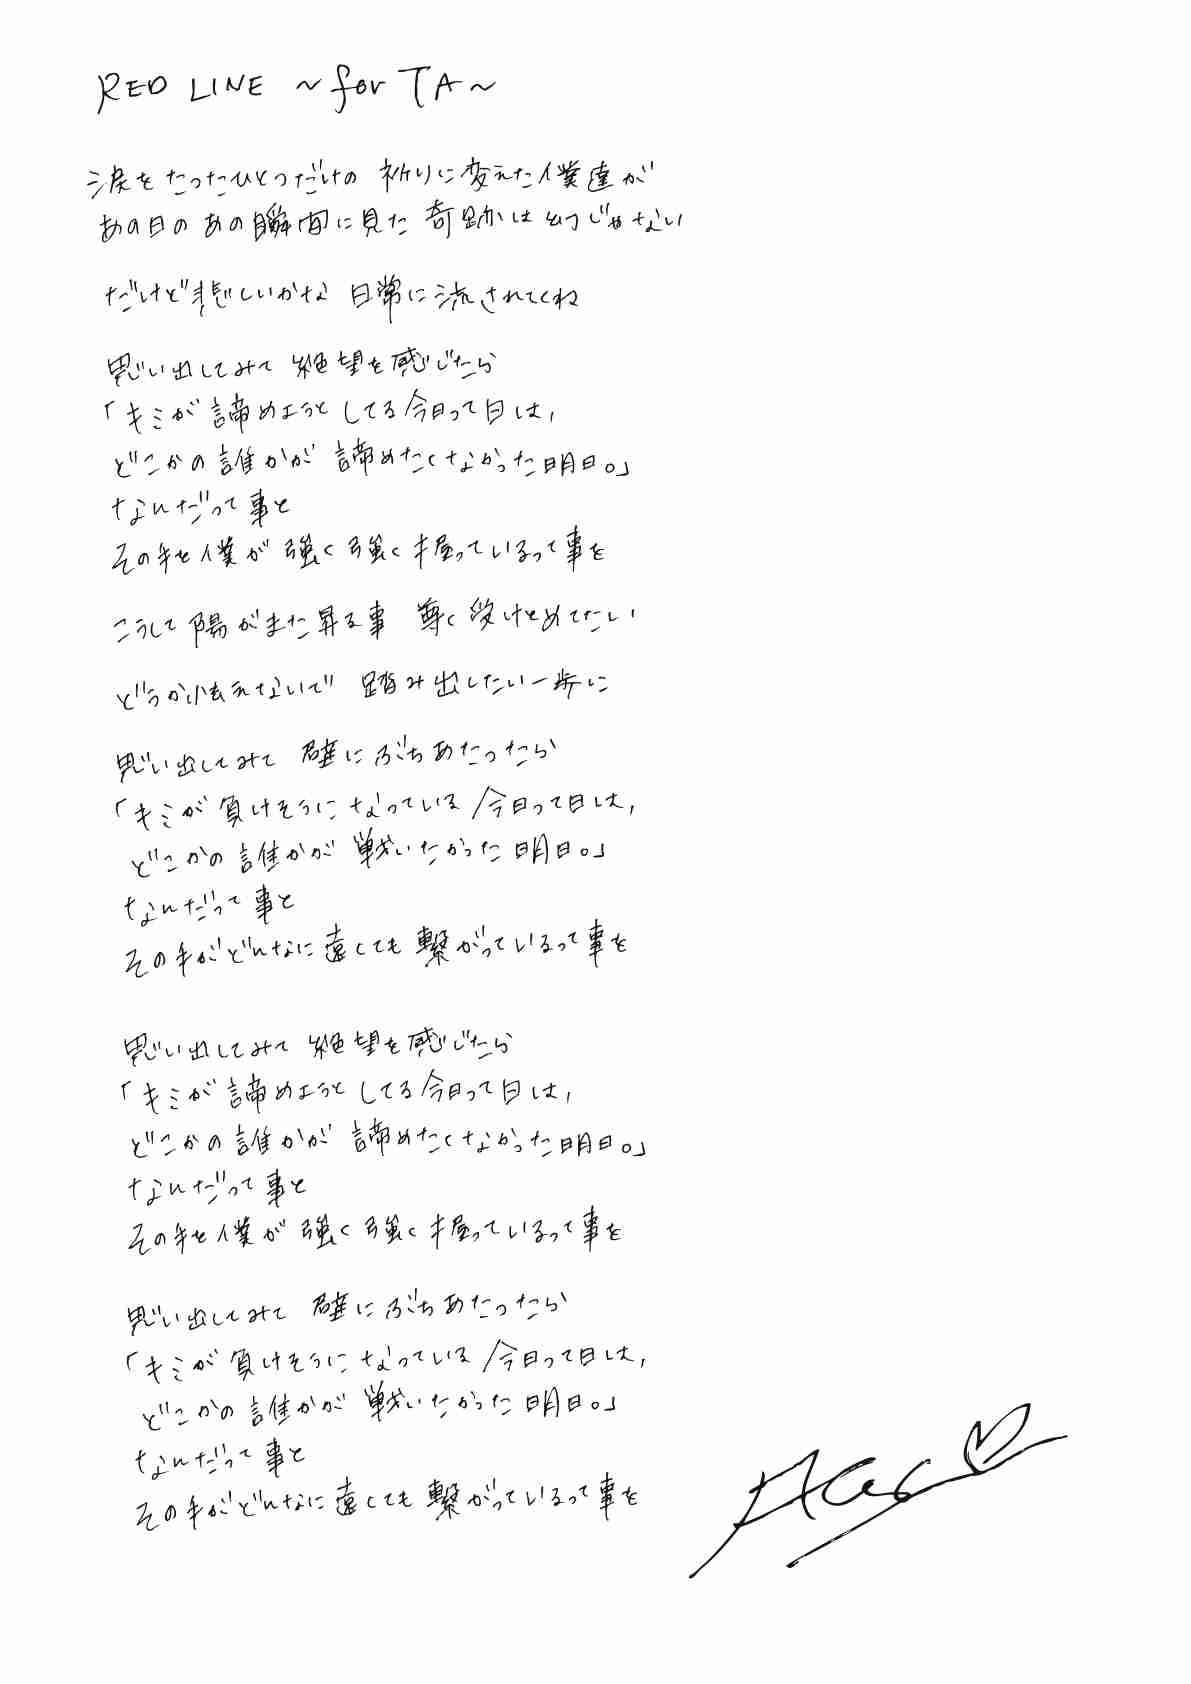 RED LINE ~for TA~
涙をたったひとつだけの 祈りに変えた僕達が
あの日のあの瞬間に見た 奇跡は幻じゃない
だけど悲しいかな 日常に流されてくね
思い出してみて 絶望を感じたら
「キミが諦めようとしてる今日って日は,
どこかの誰かが 諦めたくなかった明日。」
なんだって事と
その手を僕が 強く強く握っているって事を
こうして陽がまた昇る事 尊く受けとめてたい
どうか怯えないで 踏み出したい一歩に
思い出してみて 壁にぶちあたったら
「キミが負けそうになっている 今日って日は,
どこかの誰かが 戦いたかった明日。」
なんだって事と
その手がどんなに遠くても繋がっているって事を
思い出してみて 絶望を感じたら
「キミが諦めようとしてる今日って日は,
どこかの誰かが 諦めたくなかった明日。」
なんだって事と
その手を僕が 強く強く握っているって事を
思い出してみて 壁にぶちあたったら
「キミが負けそうになっている 今日って日は,
どこかの誰かが 戦いたかった明日。」
なんだって事と
その手がどんなに遠くても繋がっているって事を